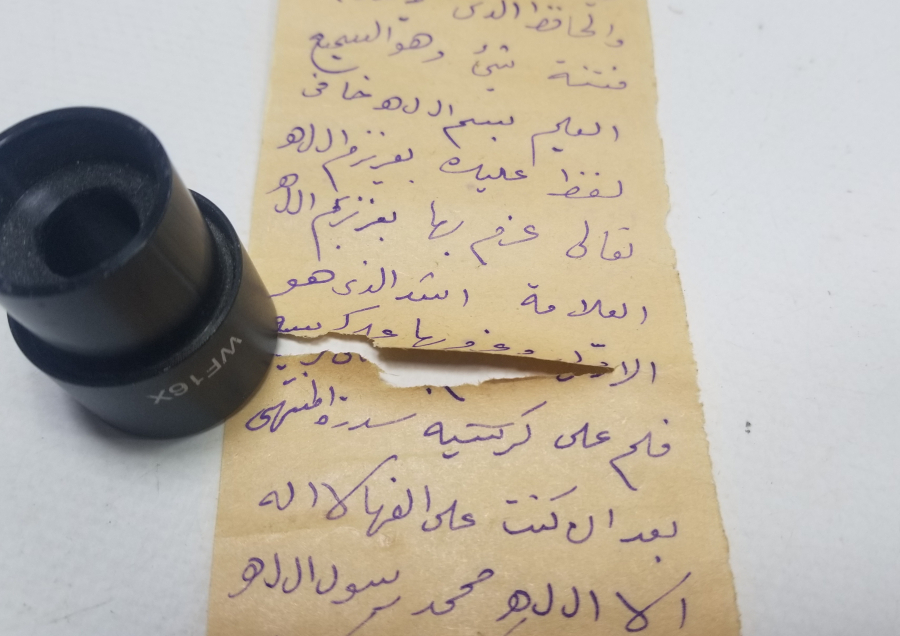 والحافظ الذى
فتنة شئ وهو السميع
العليم بسم اللہ خافى
لفظ عليه بعزيزم اللہ
تعالى عزم بها بعزيزم اللہ
العلامة اشد الذى هو
الاول
قلم على كرسيه سدرة المنتهى
بعد ان كنت على الفها لا اله
الا اللہ محمد رسول اللہ
WF16X